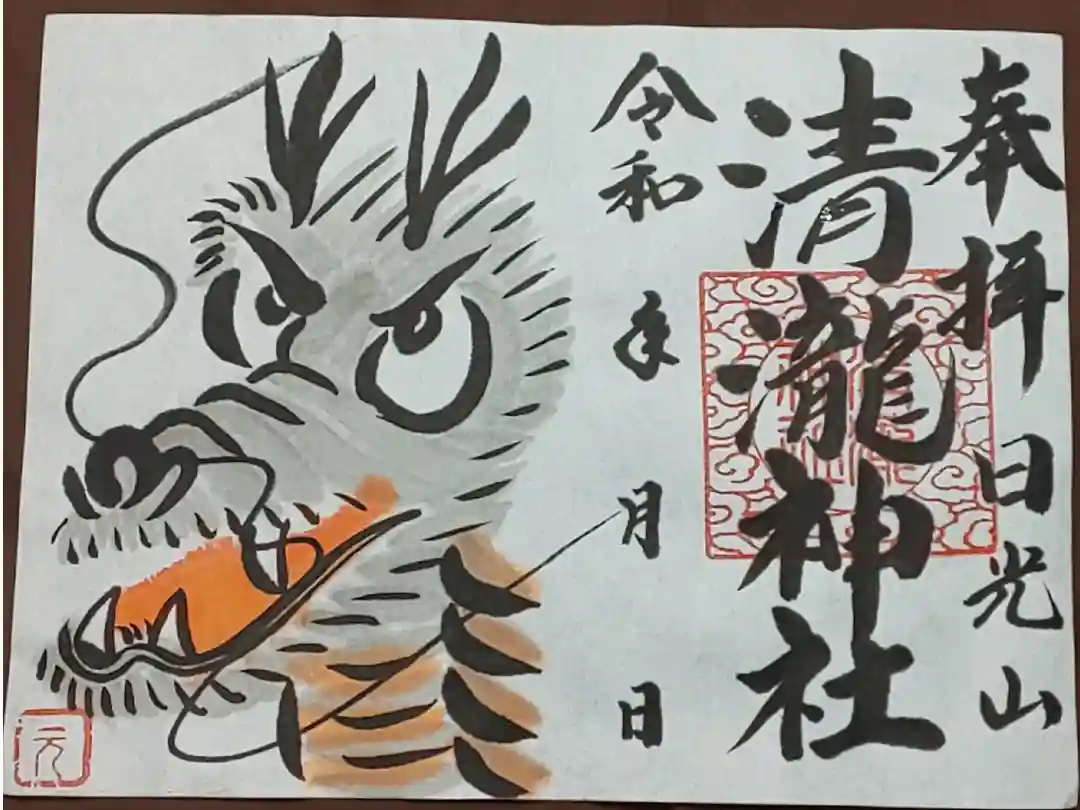 奉拝 日光山
清瀧神社
令和 年 月 日
元